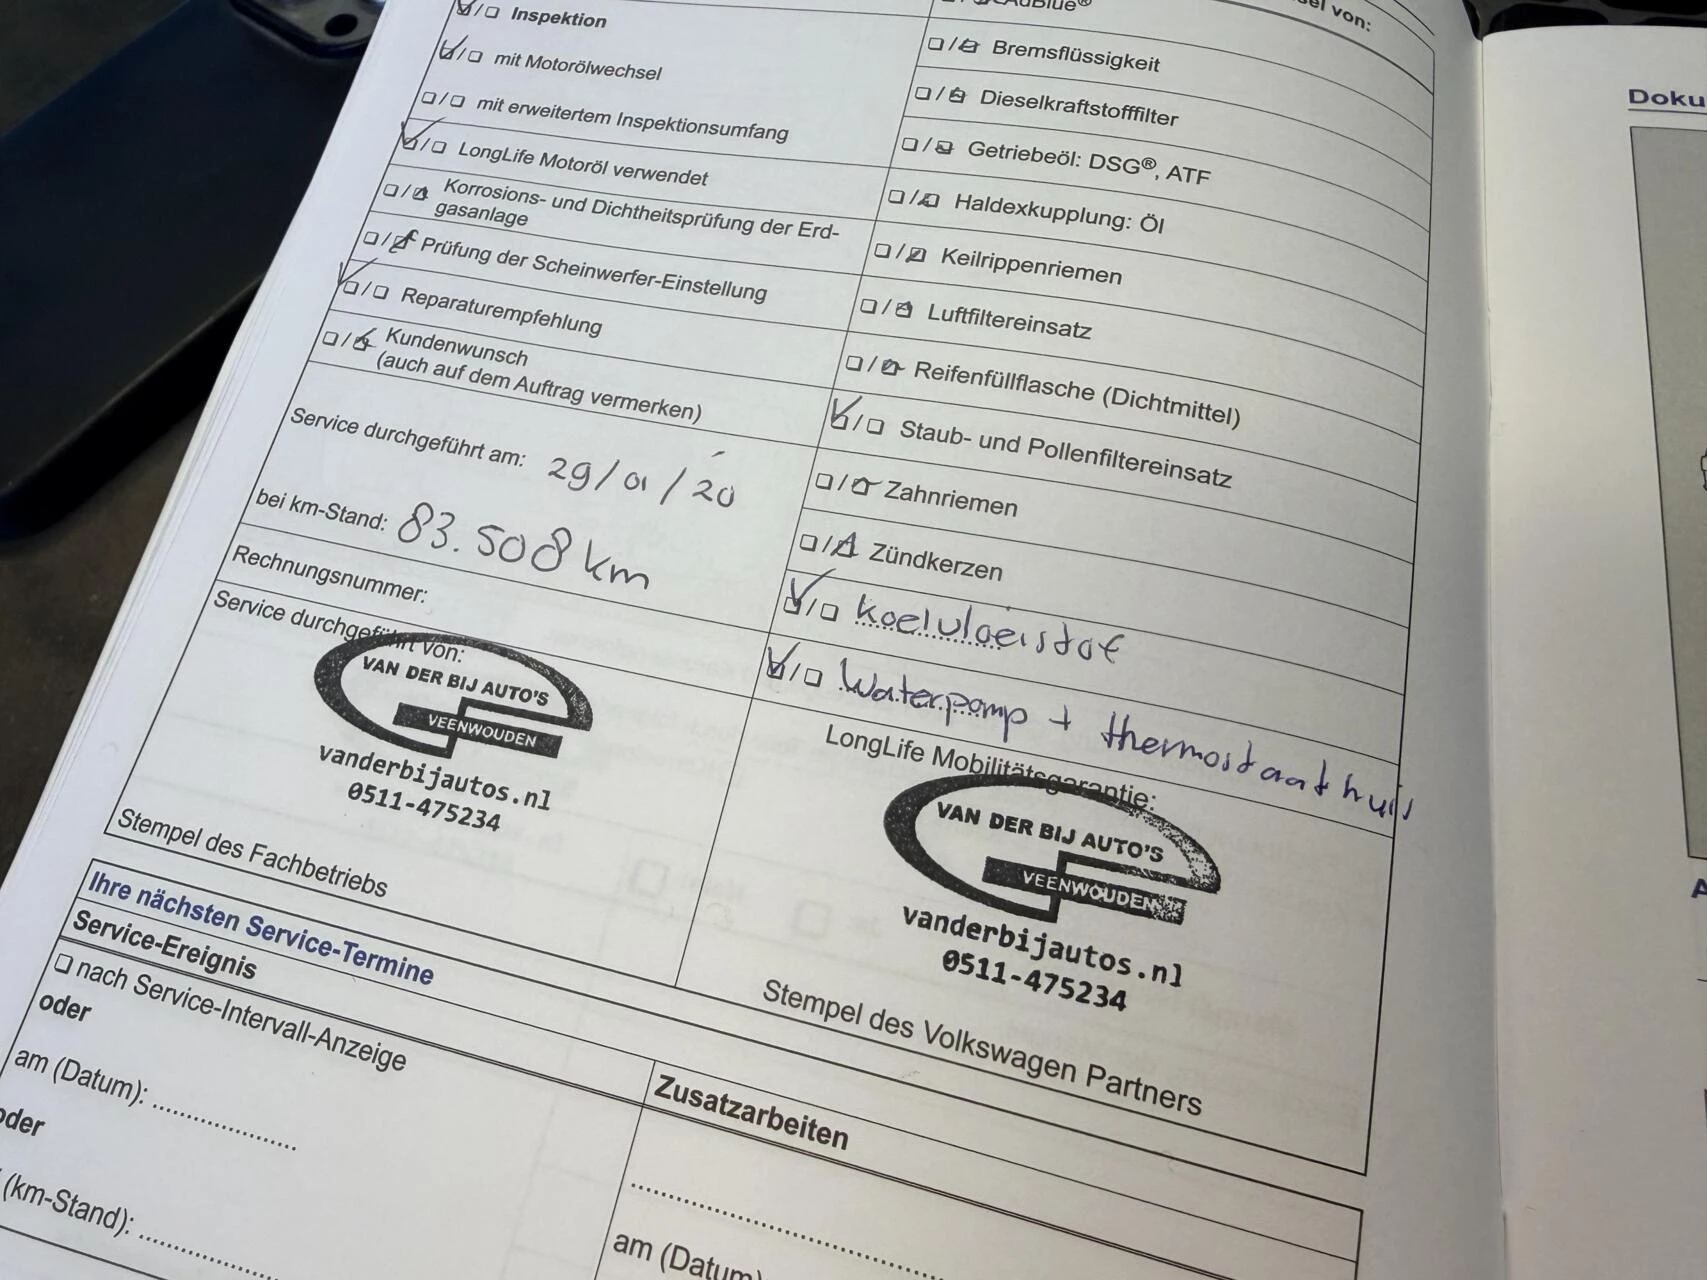 Inspektion
mit Motorölwechsel
mit erweitertem Inspektionsumfang
LongLife Motoröl verwendet
Korrosions- und Dichtheitsprüfung der Erd-
gasanlage
Prüfung der Scheinwerfer-Einstellung
Reparaturempfehlung
Kundenwunsch
(auch auf dem Auftrag vermerken)
Service durchgeführt am: 29/01/20
bei km-Stand: 83.508 km
Rechnungsnummer:
Service durchgeführt von:
VAN DER BIJ AUTO'S
VEENWOUDEN
vanderbijautos.nl
0511-475234
Stempel des Fachbetriebs
von:
AdBlue®
Bremsflüssigkeit
Dieselkraftstofffilter
Getriebeöl: DSG®, ATF
Haldexkupplung: Öl
Keilrippenriemen
Luftfiltereinsatz
Reifenfüllflasche (Dichtmittel)
Staub- und Pollenfiltereinsatz
Zahnriemen
Zündkerzen
koelvloeistof
Waterpomp + thermostaathuis
LongLife Mobilitätsgarantie:
VAN DER BIJ AUTO'S
VEENWOUDEN
vanderbijautos.nl
0511-475234
Stempel des Volkswagen Partners
Ihre nächsten Service-Termine
Service-Ereignis
nach Service-Intervall-Anzeige
oder
am (Datum):
oder
(km-Stand):
Zusatzarbeiten
am (Datum)
Doku